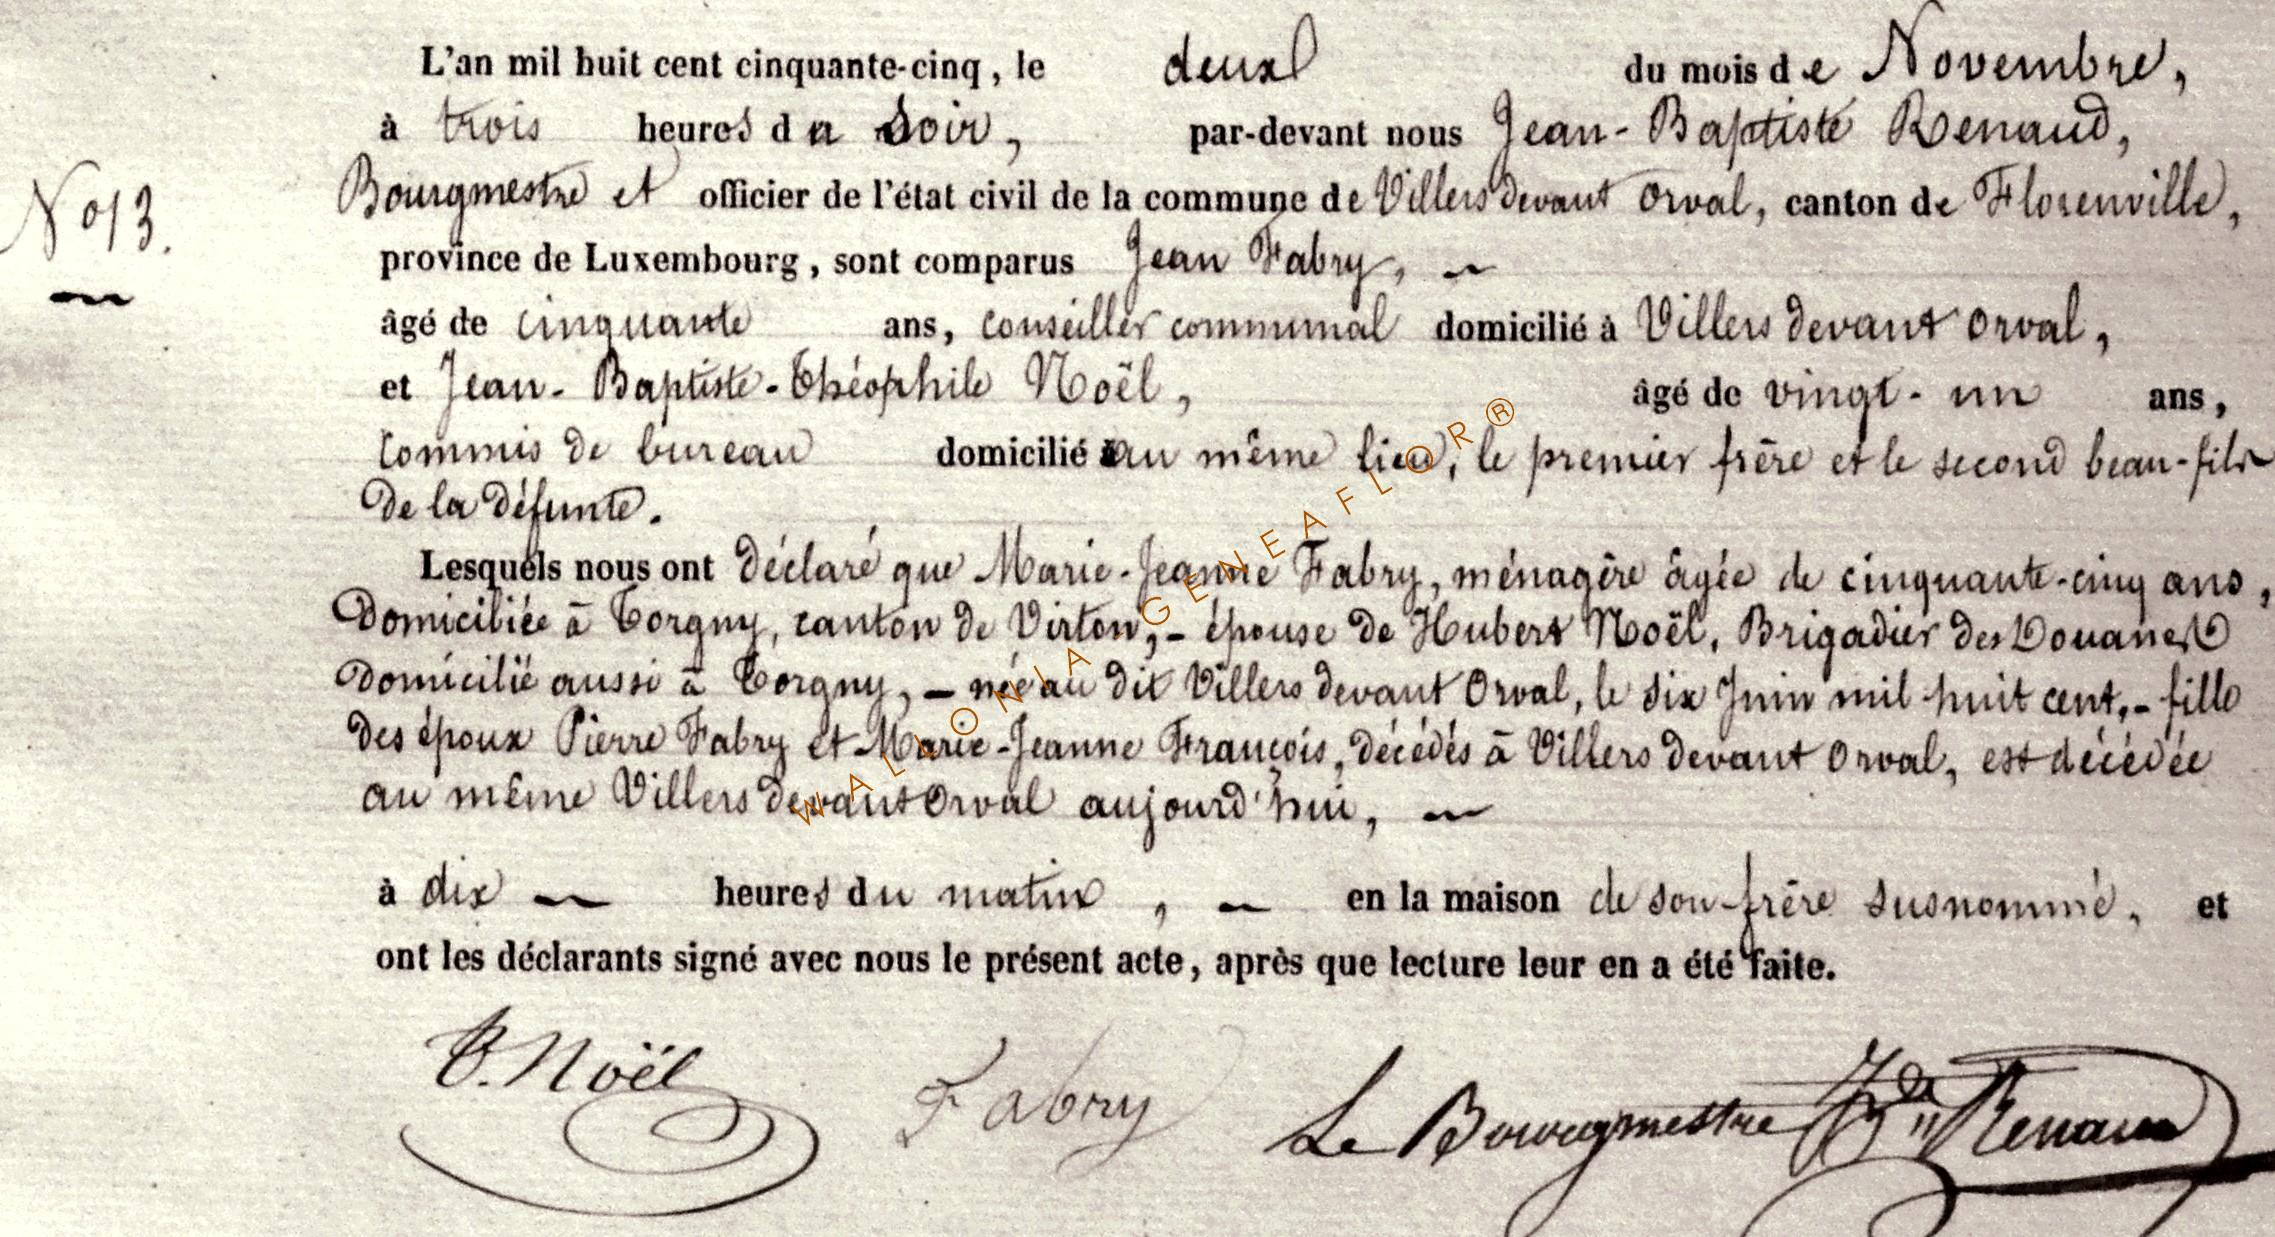 L'an mil huit cent cinquante-cinq, le deux du mois de Novembre,
à trois heures du soir, par-devant nous Jean-Baptiste Renaud,
No 13.
Bourgmestre et officier de l'état civil de la commune de Villers devant Orval, canton de Florenville,
province de Luxembourg, sont comparus Jean Fabry, ~
âgé de cinquante ans, conseiller communal domicilié à Villers devant Orval,
et Jean-Baptiste-Théophile Noël, âgé de vingt-un ans,
commis de bureau domicilié au même lieu, le premier frère et le second beau-fils
de la défunte.
Lesquels nous ont déclaré que Marie-Jeanne Fabry, ménagère âgée de cinquante-cinq ans,
domiciliée à Torgny, canton de Virton, - épouse de Hubert Noël, Brigadier des Douanes
domicilié aussi à Torgny, - née au dit Villers devant Orval, le six Juin mil huit cent, - fille
des époux Pierre Fabry et Marie-Jeanne François, décédés à Villers devant Orval, est décédée
au même Villers devant Orval aujourd'hui, ~
à dix ~ heures du matin, ~ en la maison de son frère susnommé, et
ont les déclarants signé avec nous le présent acte, après que lecture leur en a été faite.
T. Noël Fabry Le Bourgmestre Renaud
WALLONIA GENEAFLOR®